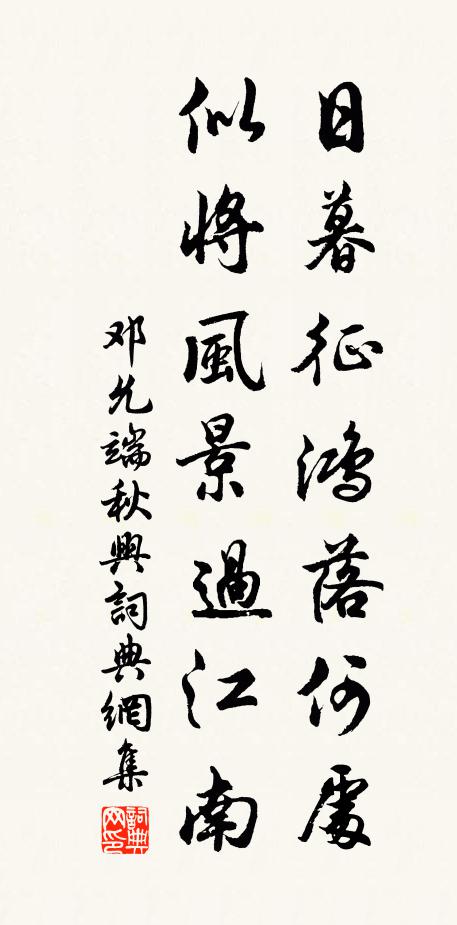 日暮征鴻落何處
似將風景過江南
邓允端秋興詞典網集
詞典網印